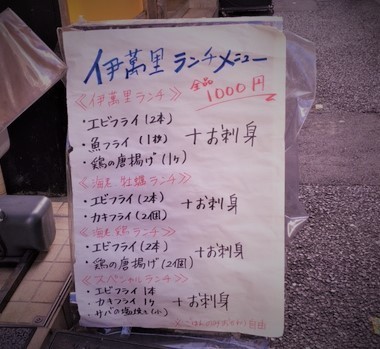 伊萬里ランチメニュー
全品 1000円
《伊萬里ランチ》
・エビフライ(2本)
・魚フライ(1枚) +お刺身
・鶏の唐揚げ(1ヶ)
《海老 牡蠣ランチ》
・エビフライ(2本) +お刺身
・カキフライ(2個)
《海老 鶏ランチ》
・エビフライ(2本) +お刺身
・鶏の唐揚げ(2個)
《スペシャルランチ》
・エビフライ 1本
・カキフライ 1ヶ +お刺身
・サバの塩焼き(小)
自由